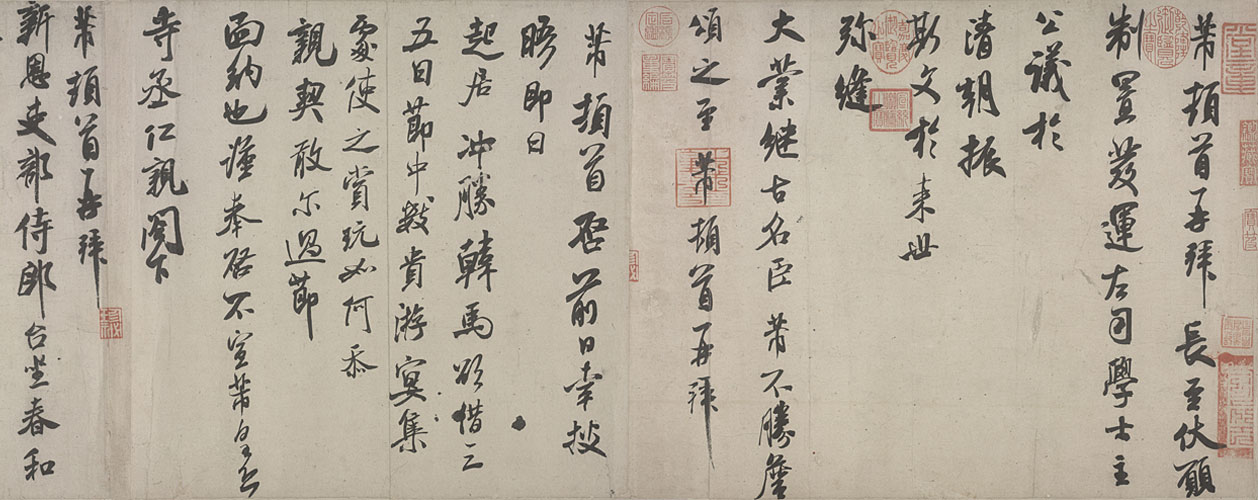 芾頓首再拜 長至伏願
制置發運左司學士主
公議於
清朝振
斯文於來世
弥縫
大業繼古名臣芾不勝詹
頌之至 芾頓首再拜
芾頓首啓前日幸披
晤即日
起居冲勝韓馬欲借三
五日節中数貴游宴集
處使之賞玩如何忝
親契敢尔過節
面納也謹奉啓不宣芾皇恐
寺丞仁親閣下
芾頓首再拜
新恩吏部侍郎台坐春和